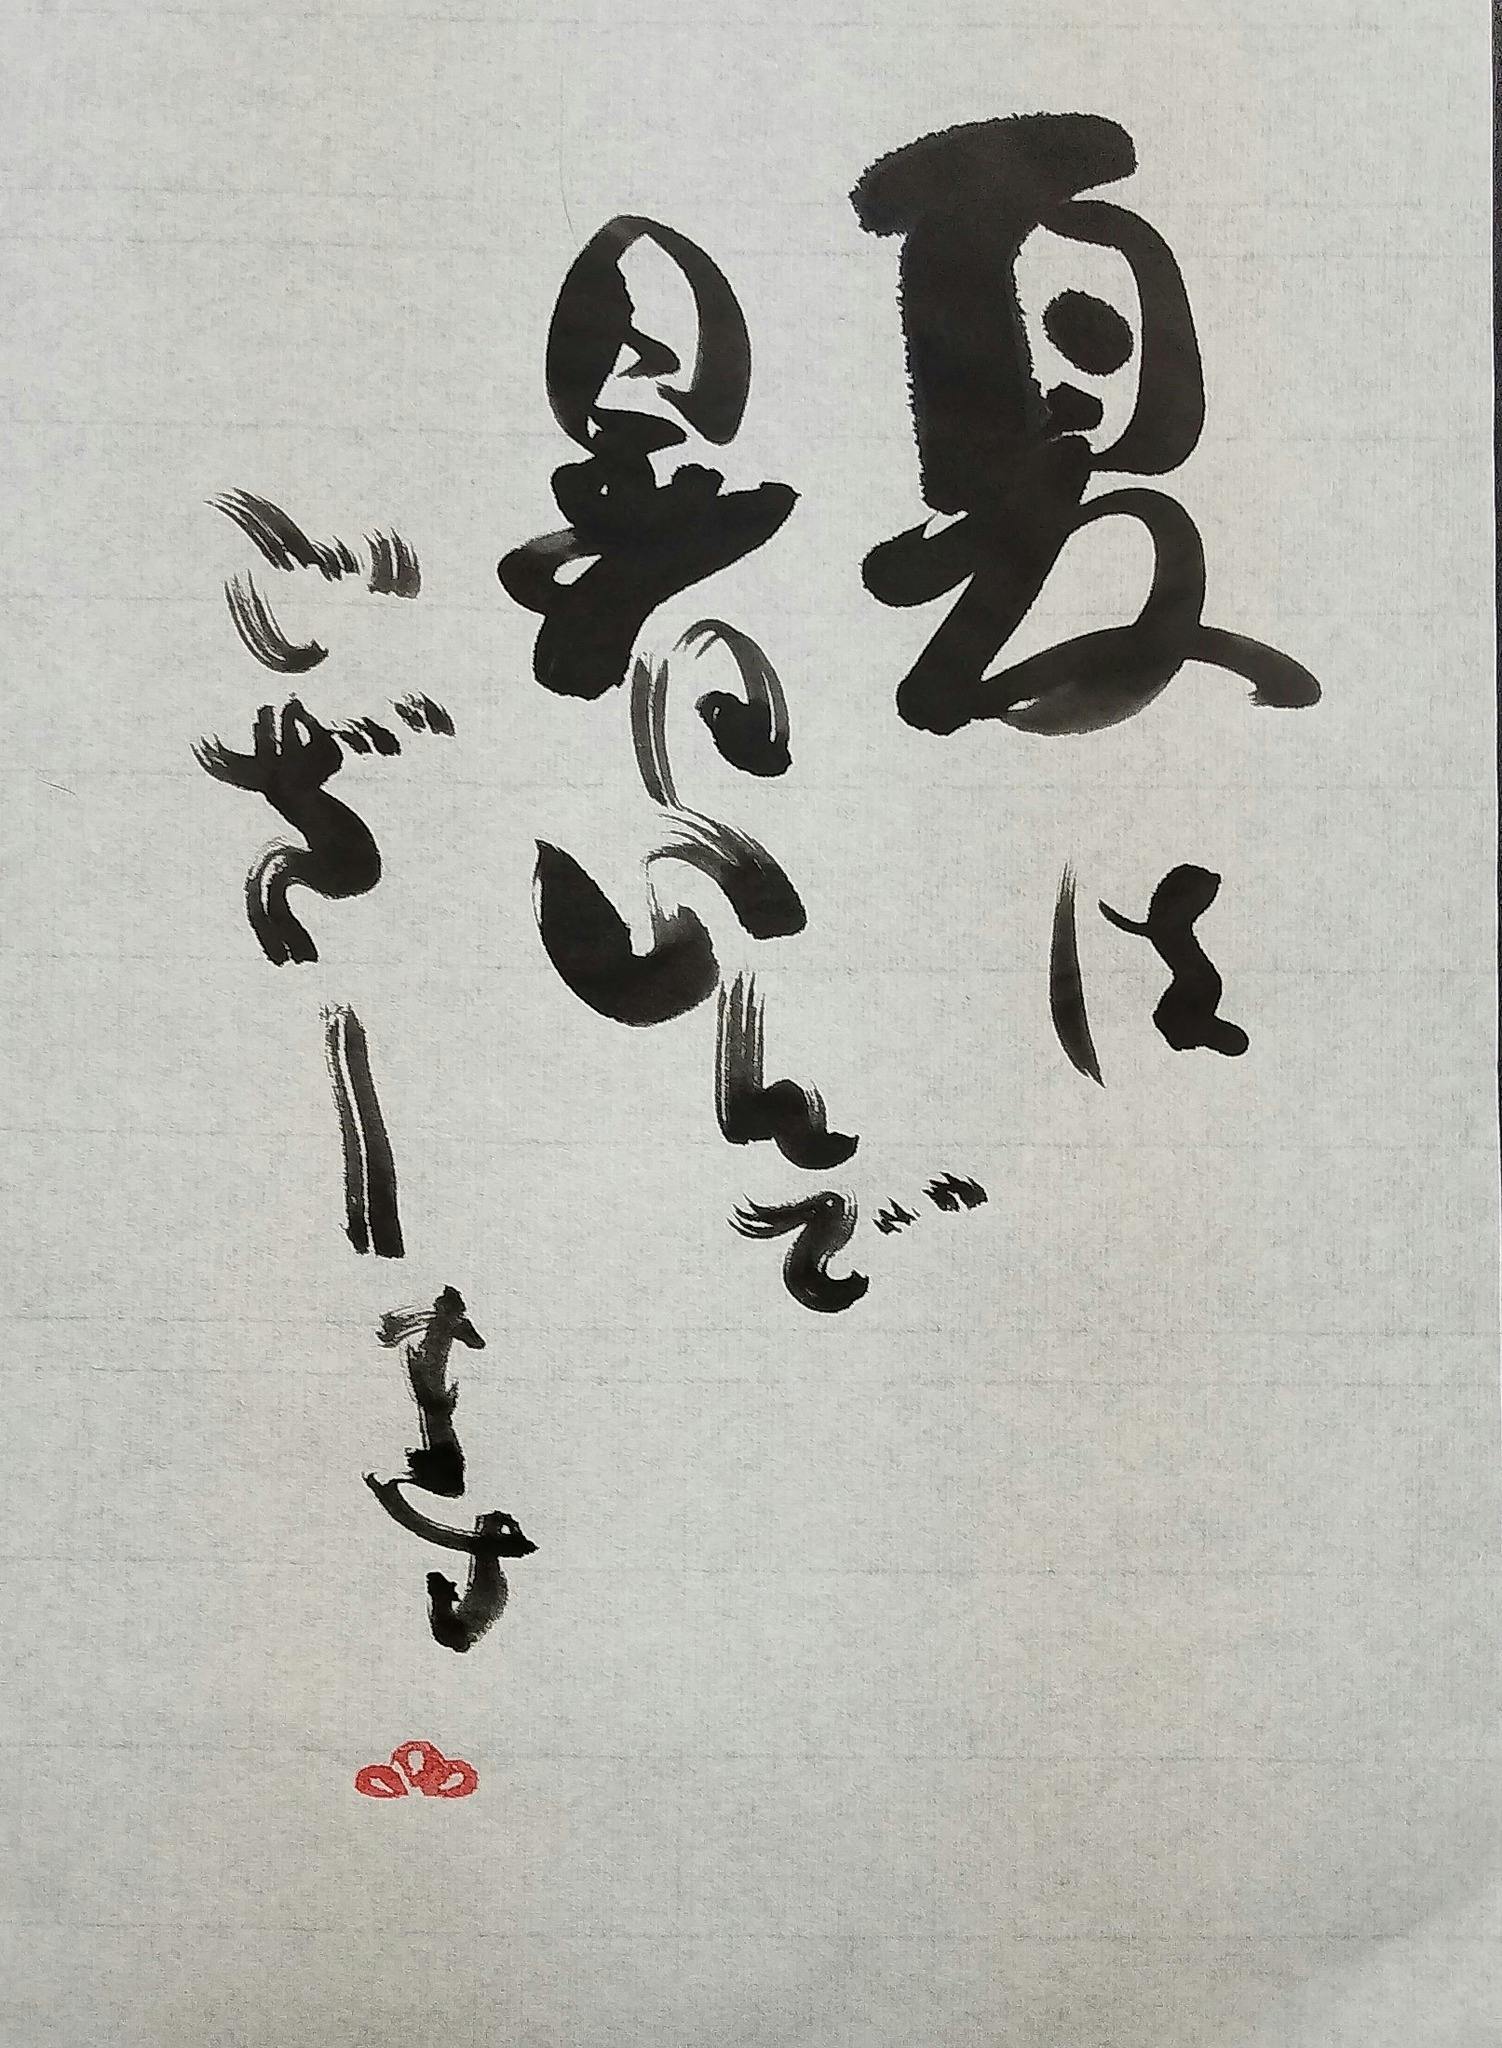 夏は
暑いんで
ござーます